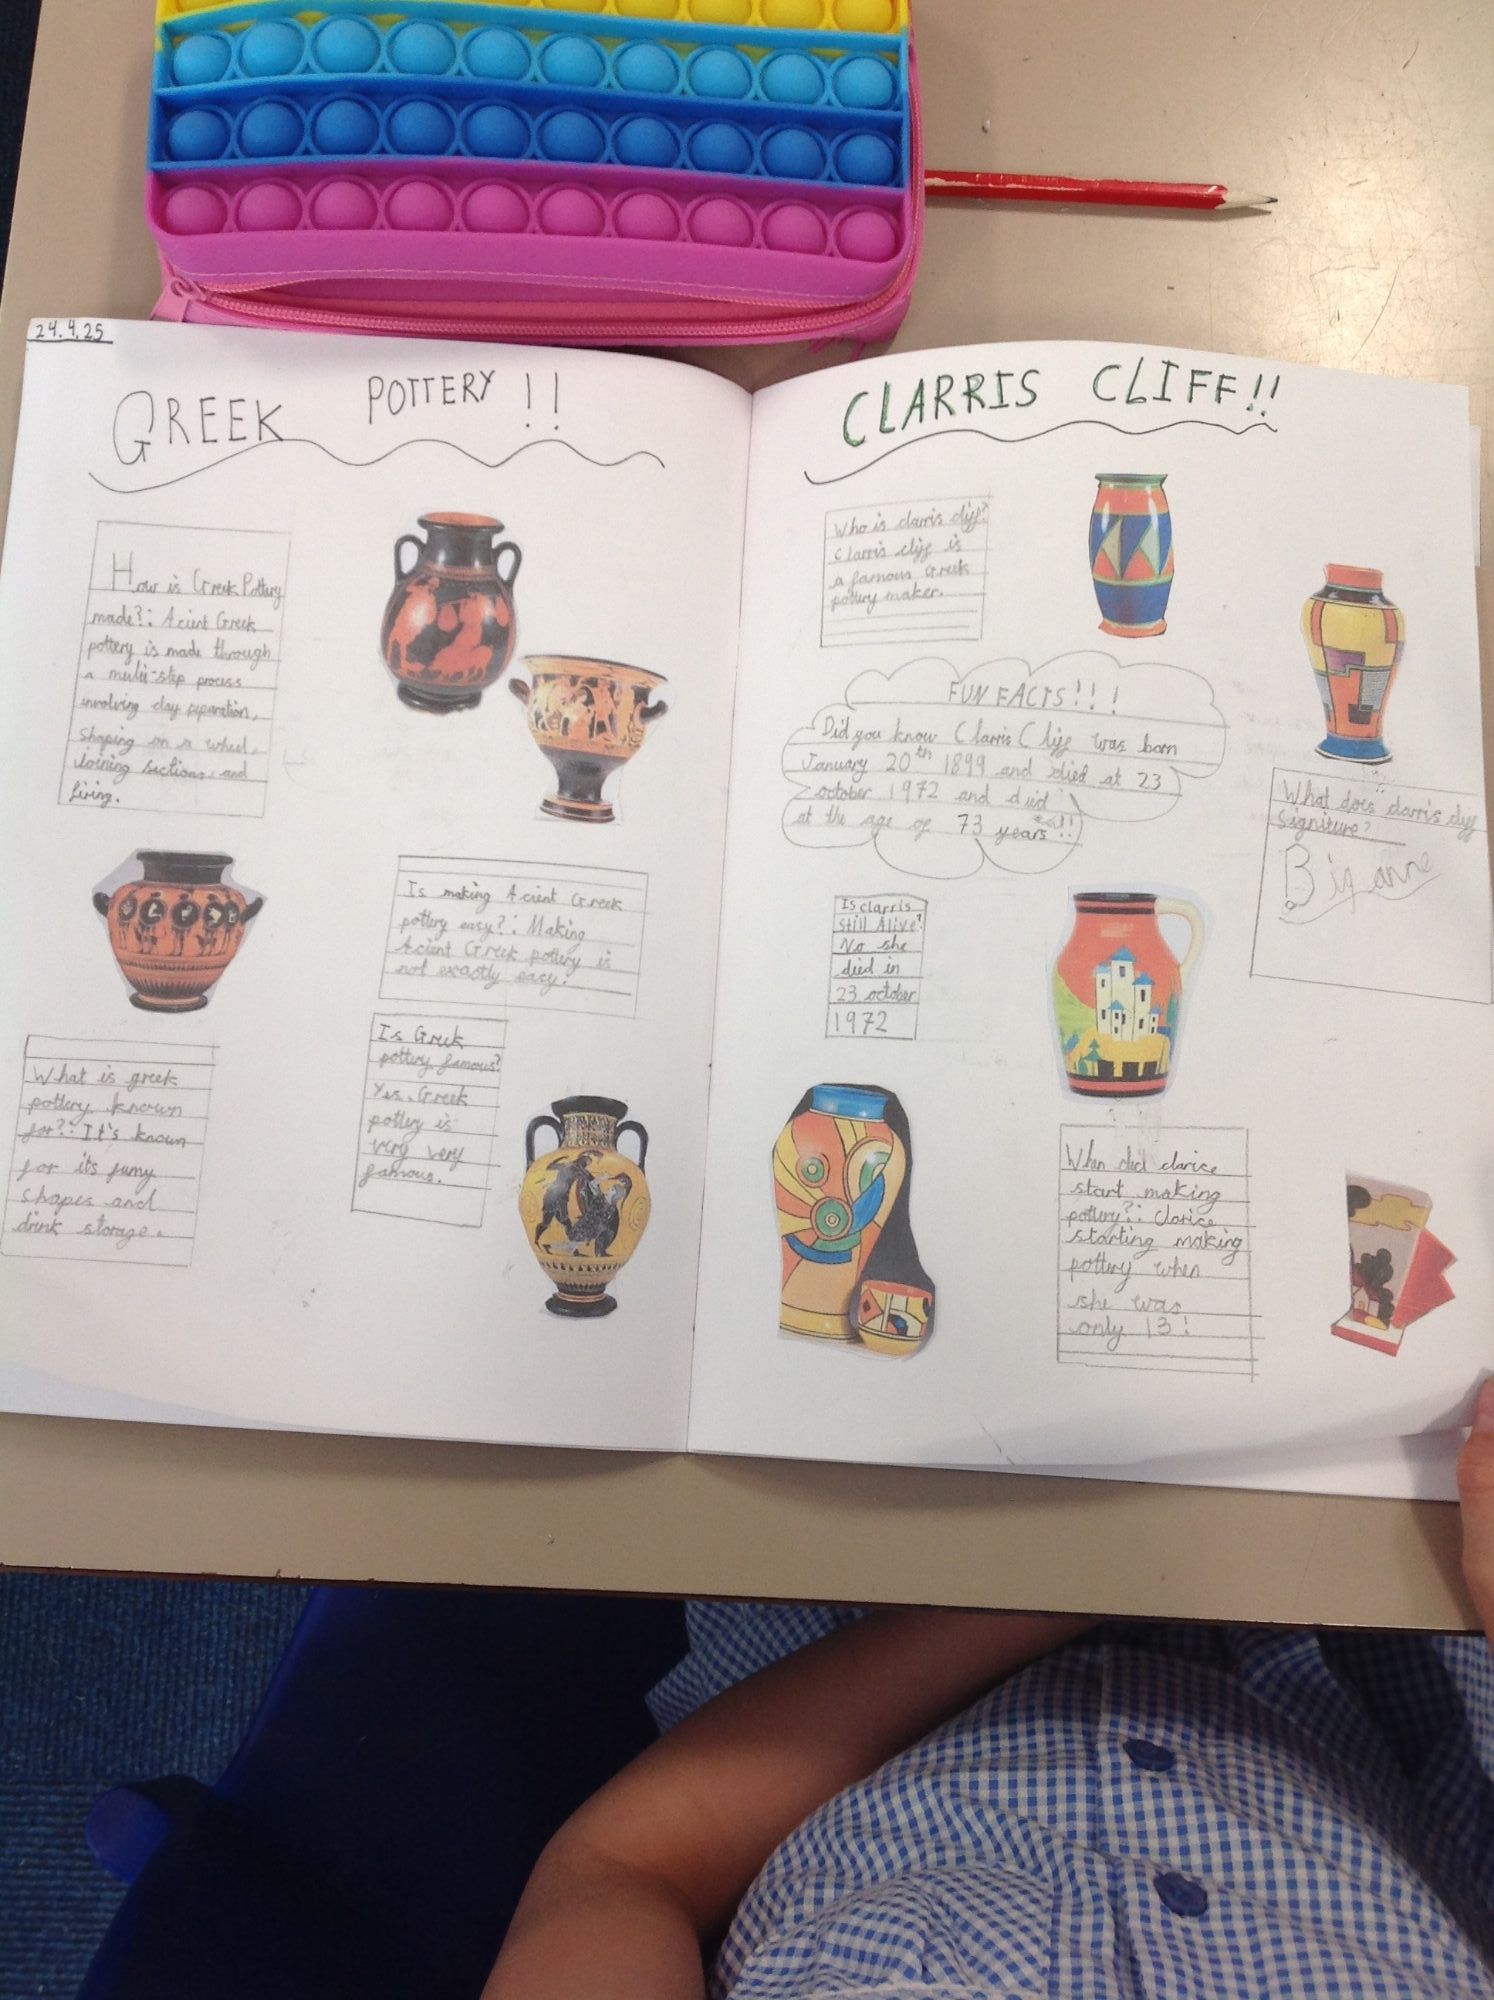 24.4.25
GREEK POTTERY !!
How is Greek Pottery
made?: Acient Greek
pottery is made through
a multi-step process
involving clay preparation,
shaping on a wheel,
joining sections, and
firing.
Is making Acient Greek
pottery easy?: Making
Acient Greek pottery is
not exactly easy.
What is greek
pottery known
for?: It's known
for its
shapes and
drink storage.
Is Greek
pottery famous?
Yes, Greek
pottery is
very very
famous.
CLARRIS CLIFF!!
Who is clarris cliff?
Clarris cliff is
a famous Greek
pottery maker.
FUN FACTS!!!
Did you know Clarris Cliff was born
January 20th 1899 and died at 23
october 1972 and died
at the age of 73 years!!
What does clarris cliff
signiture?
Bizanne
Is clarris
still Alive?
No she
died in
23 october
1972
When did clarice
start making
pottery?: Clarice
starting making
pottery when
she was
only 13!